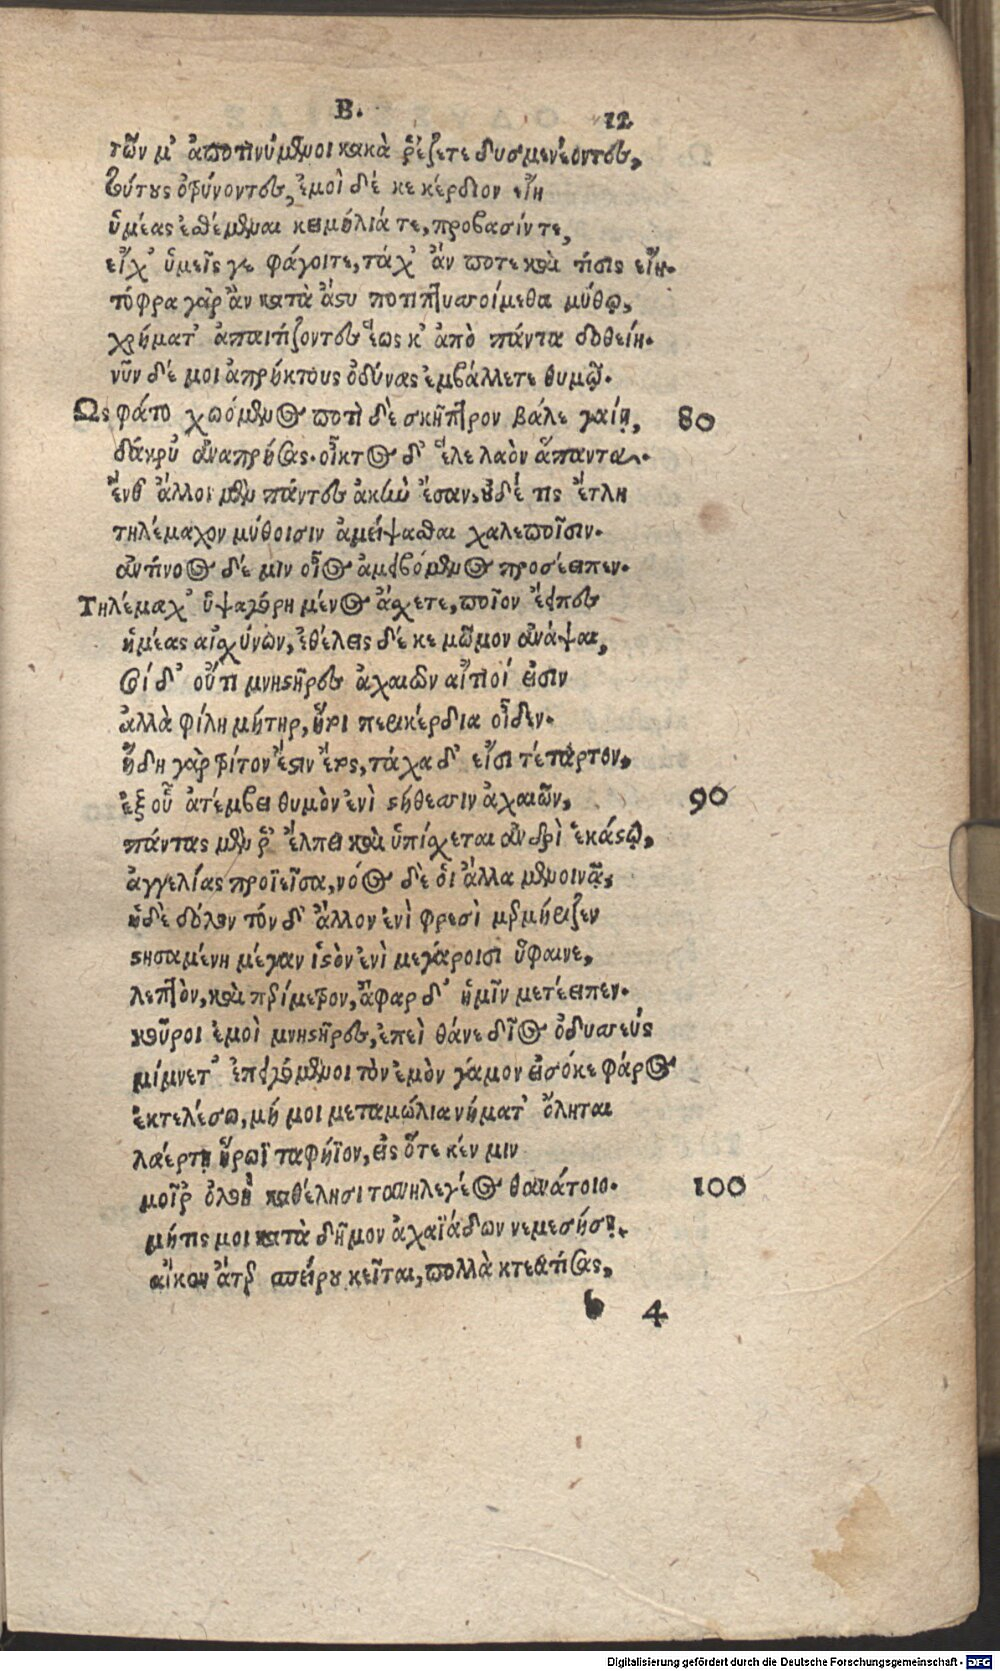 Β.
12
τῶν μ' ἀποτινύμενοι κακὰ ῥέζετε δυσμενέοντες,
τούτους ὀτρύνοντες, ἐμοὶ δέ κε κέρδιον εἴη
ὑμέας ἐσθέμεναι κειμήλιά τε, πρόβασίν τε,
εἴχ' ὑμεῖς γε φάγοιτε, τάχ' ἄν ποτε καὶ τίσις εἴη.
τόφρα γὰρ ἂν κατὰ ἄστυ ποτιπτυσσοίμεθα μύθῳ,
χρήματ' ἀπαιτίζοντες ἕως κ' ἀπὸ πάντα δοθείη.
νῦν δέ μοι ἀπρήκτους ὀδύνας ἐμβάλλετε θυμῷ.
Ὣς φάτο χωόμενος ποτὶ δὲ σκῆπτρον βάλε γαίῃ, 80
δάκρυ ἀναπρήσας. οἶκτος δ' ἕλε λαὸν ἅπαντα.
ἔνθ' ἄλλοι μὲν πάντες ἀκὴν ἔσαν, οὐδέ τις ἔτλη
τηλέμαχον μύθοισιν ἀμείψασθαι χαλεποῖσιν.
ἀντίνοος δέ μιν οἶος ἀμειβόμενος προσέειπεν.
Τηλέμαχ' ὑψαγόρη μένος ἄσχετε, ποῖον ἔειπες
ἡμέας αἰσχύνων, ἐθέλεις δέ κε μῶμον ἀνάψαι,
σοί δ' οὔτι μνηστῆρες ἀχαιῶν αἴτιοί εἰσιν
ἀλλὰ φίλη μήτηρ, ἥτοι περικέρδια οἶδεν.
ἤδη γὰρ τρίτον ἐστὶν ἔτος, τάχα δ' εἶσι τέταρτον,
ἐξ οὗ ἀτέμβει θυμὸν ἐνὶ στήθεσσιν ἀχαιῶν, 90
πάντας μέν ῥ' ἔλπει καὶ ὑπίσχεται ἀνδρὶ ἑκάστῳ,
ἀγγελίας προϊεῖσα, νόος δὲ οἱ ἄλλα μενοινᾷ,
ἡδὲ δόλον τόνδ' ἄλλον ἐνὶ φρεσὶ μερμήριξεν
στησαμένη μέγαν ἱστὸν ἐνὶ μεγάροισι ὕφαινε,
λεπτὸν, καὶ περίμετρον, ἄφαρ δ' ἡμῖν μετέειπεν.
κοῦροι ἐμοὶ μνηστῆρες, ἐπεὶ θάνε δῖος ὀδυσσεύς
μίμνετ' ἐπειγόμενοι τὸν ἐμὸν γάμον εἰσόκε φάρος
ἐκτελέσω, μή μοι μεταμώλια νήματ' ὄληται
λαέρτῃ ἥρωϊ ταφήϊον, εἰς ὅτε κέν μιν
μοῖρ' ὀλοὴ καθέλῃσι τανηλεγέος θανάτοιο. 100
μήτις μοι κατὰ δῆμον ἀχαϊάδων νεμεσήσῃ.
αἴκεν ἄτερ σπείρου κεῖται, πολλὰ κτεατίσας,
b 4
Digitalisierung gefördert durch die Deutsche Forschungsgemeinschaft - DFG